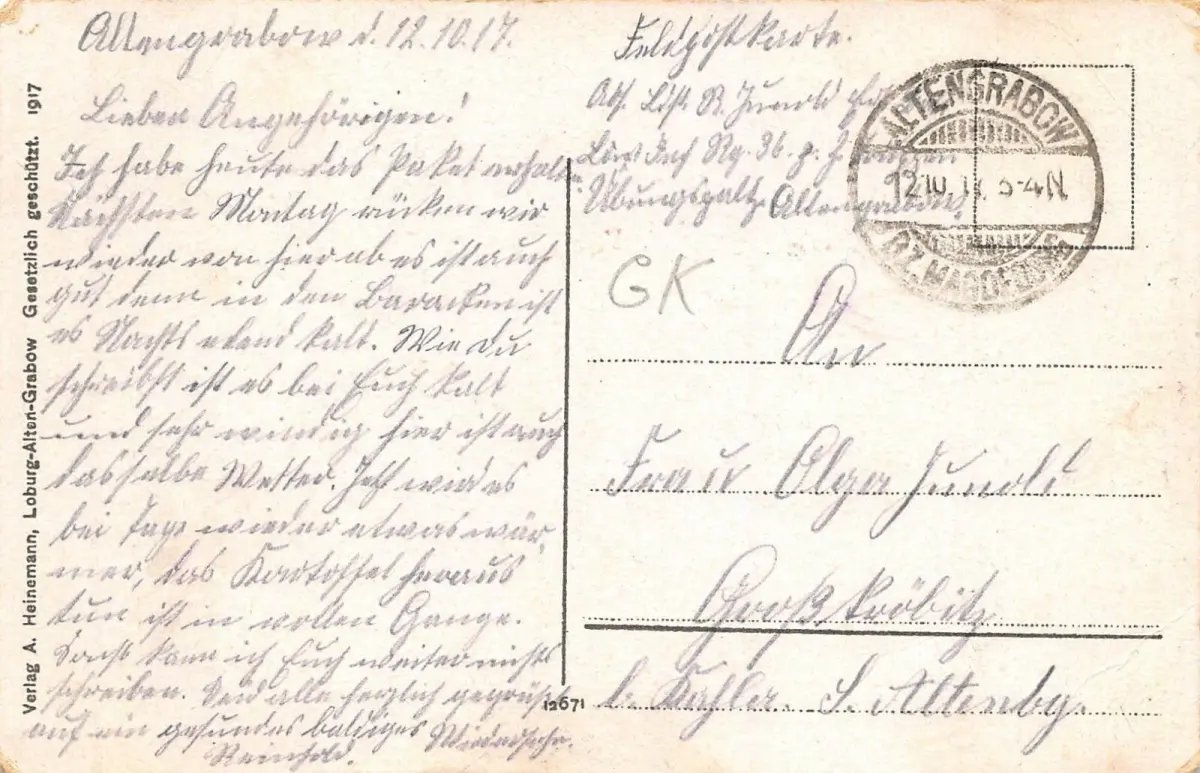 Altengrabow d. 12.10.17.
Lieben Angehörigen!
Ich habe heute das Paket erhalten
Nächsten Montag rücken wir
wieder von hier ab es ist auch
gut denn in den Baracken ist
es Nachts elend kalt. Wie du
schreibst ist es bei Euch kalt
und sehr windig hier ist auch
dasselbe Wetter. Jetzt wird es
bei Tage wieder etwas wär
mer, das Kartoffel heraus
tun ist in vollen Gange.
Sonst kann ich Euch weiter nichts
schreiben. Seid alle herzlich gegrüßt
auf ein gesundes baldiges Wiedersehn.
Reinhold.
Feldpostkarte.
Abs. R. Jundt
Inf Rg. 36. z. Z.
Übungsplatz Altengrabow.
ALTENGRABOW
12.10.17. 3-4N.
BZ. MAGDEBURG
GK
An
Frau Olga Jundt
Großkröbitz
b. Kahla. S. Altenbg.
12671
Verlag A. Heinemann, Loburg-Alten-Grabow Gesetzlich geschützt. 1917